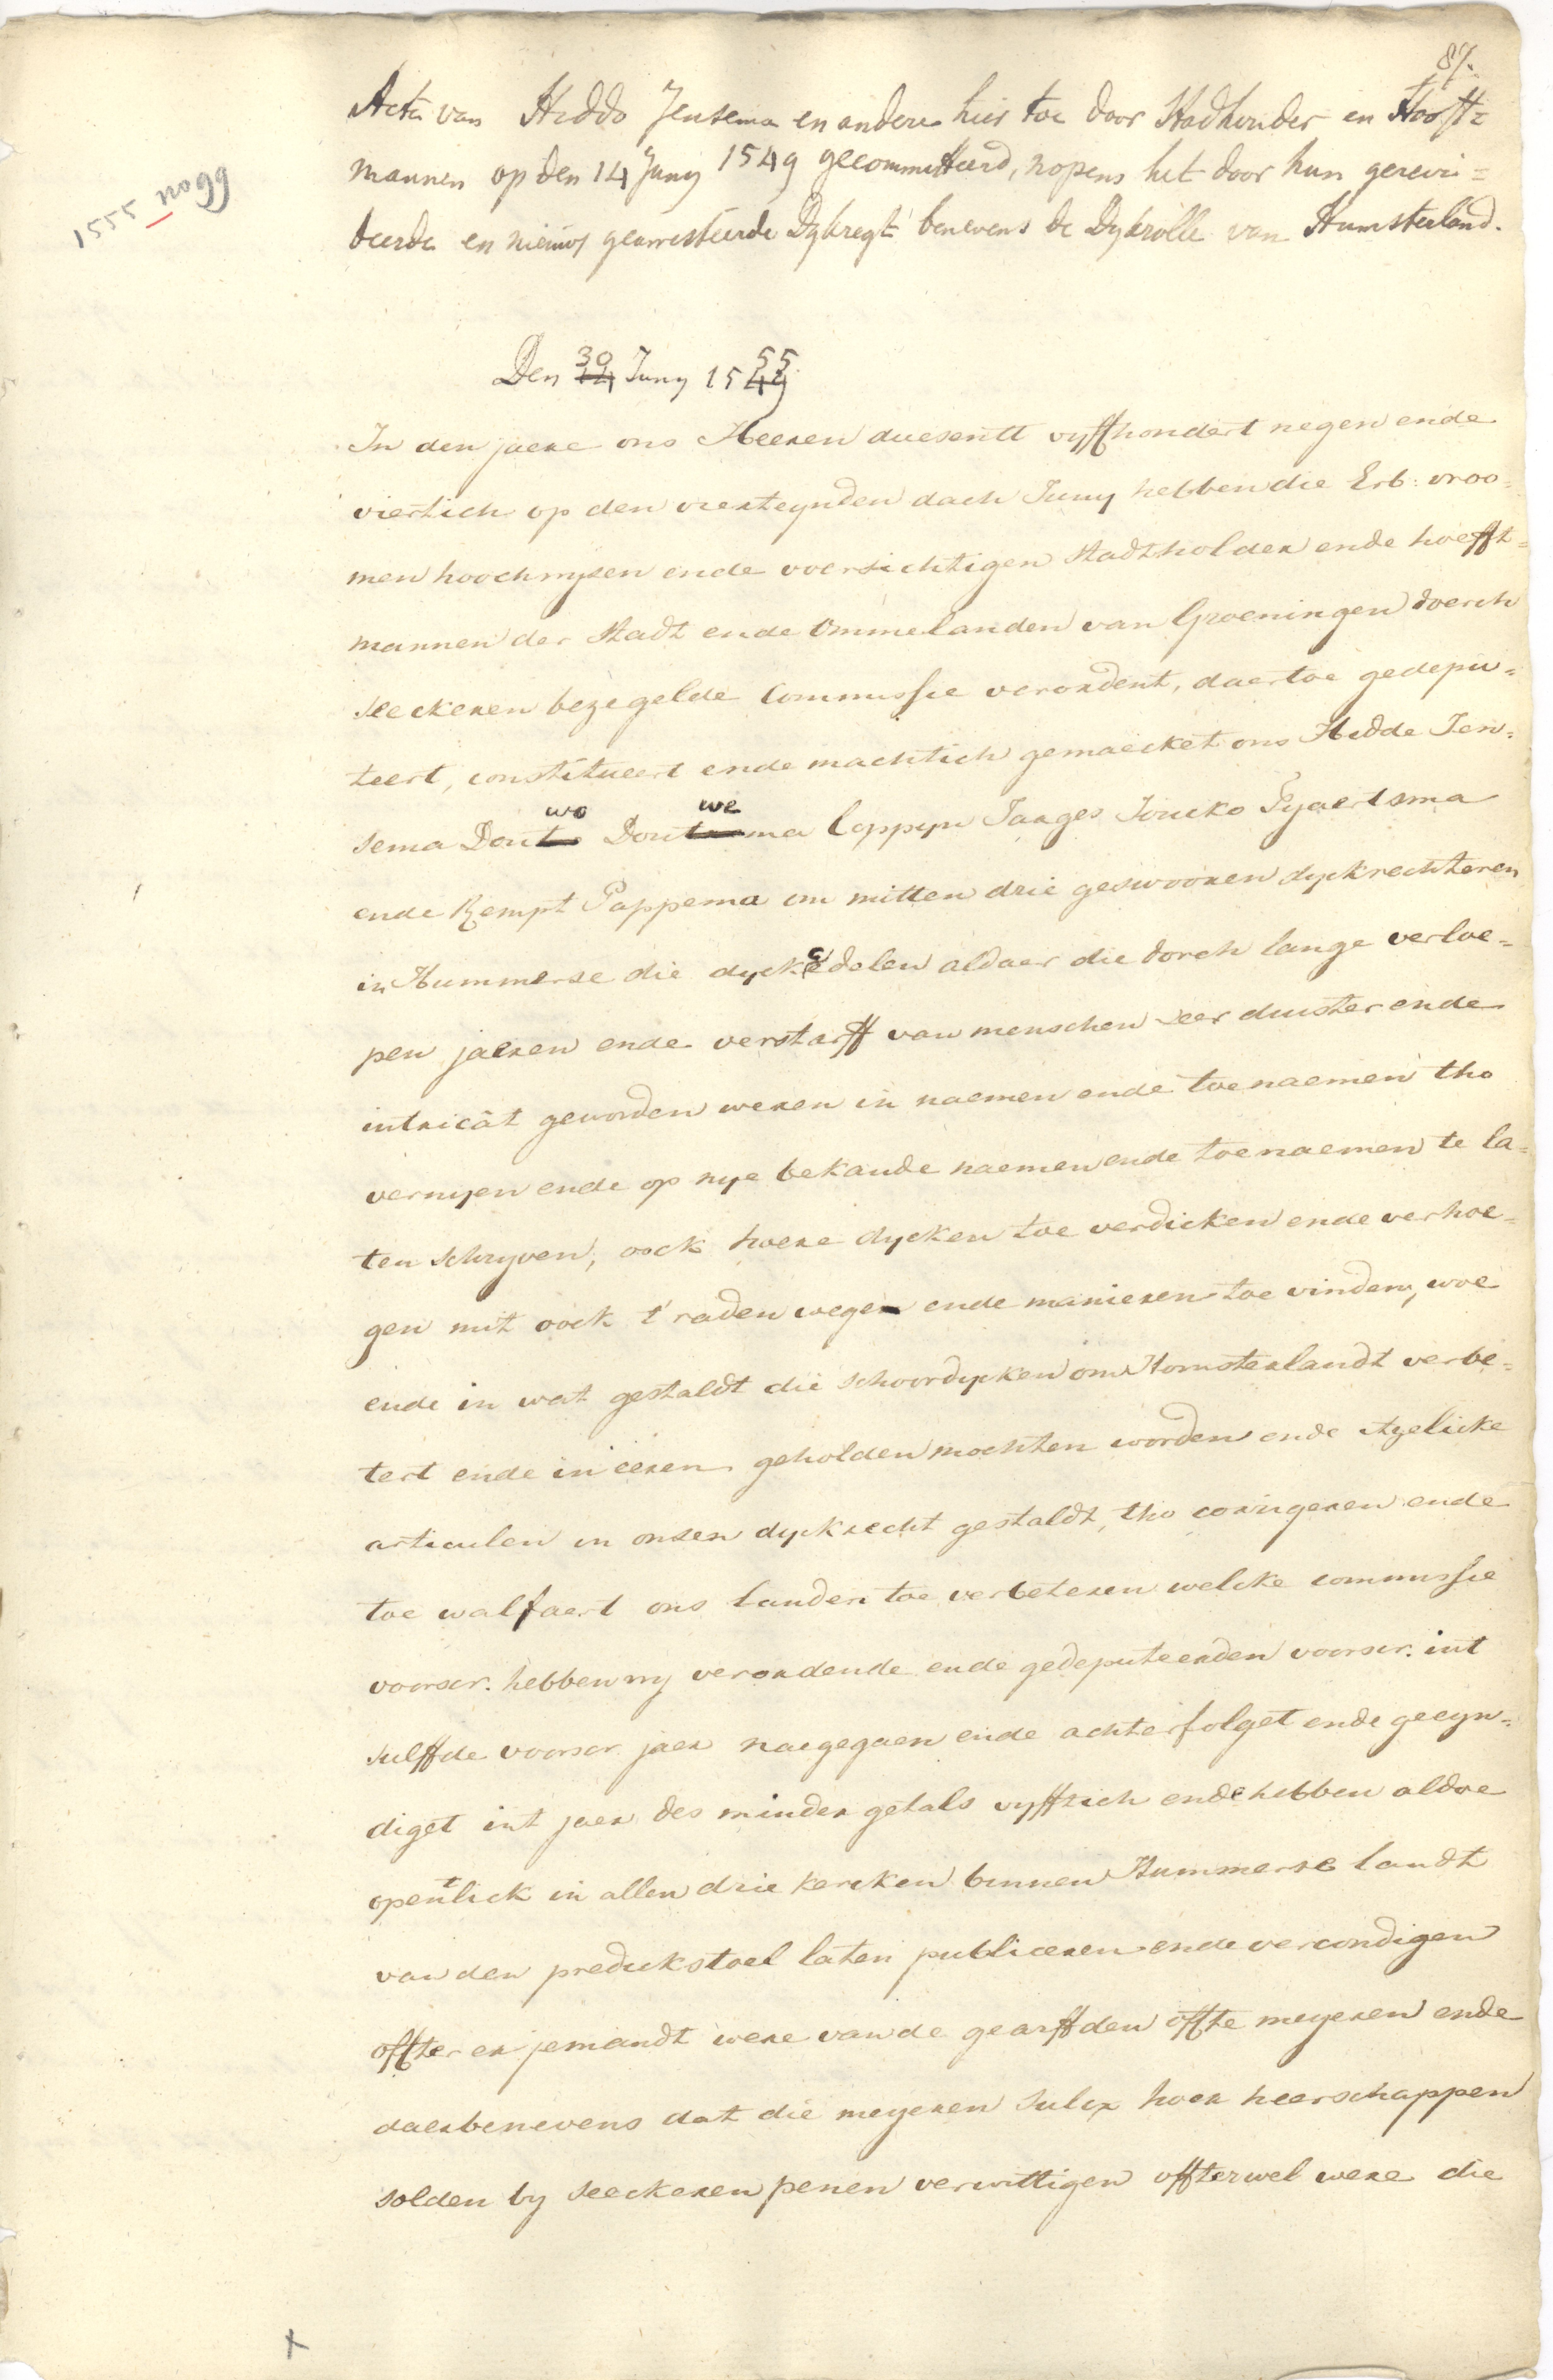 87.
1555 no 99
Acte van Hiddo Jensema en andere hier toe door Stadhouder en Hooft=
mannen op den 14 Juny 1549 gecommitteerd, nopens het door hun gerevi=
deerde en nieuw gearresteerde Dykregt benevens de Dykrolle van Humsterland.
Den 30 14 Juny 15 55 49
In den jaere ons Heeren duesentt vyffhondert negen ende
viertich op den vierteynden dach Juny hebben die Erb: vroo=
men hoochwysen ende voersichtigen Stadtholder ende hoefft=
mannen der Stadt ende Ommelanden van Groeningen doerch
seeckeren bezegelde Commissie verordent, daertoe gedepu=
teert, constitueert ende machtich gemaecket ons Hidde Jen=
wo we
sema Douto Doutema Coppyn Jarges Joucko Tjaertsma
ende Rempt Pappema om mitten drie geswooren dyckrechteren
in Hummerse die dyckcedelen aldaer die dorch lange verloe=
pen jaeren ende verstarff van menschen seer duister ende
intricât geworden weren in naemen ende toenaemen tho
vernyen ende op nye bekande naemen ende toenaemen te la=
ten schryven, oock hoere dycken toe verdicken ende verhoe=
gen mit oock t'raden wegen ende manieren toe vinden, woe
ende in wat gestaldt die schoordycken om Homsterlandt verbe=
tert ende in eeren geholden mochten worden ende etzelicke
articulen in onsen dyckrecht gestaldt, tho corrigeren ende
toe walfaert ons landen toe verbeteren welcke commissie
voorscr. hebben wy verordende ende gedeputeerden voorscr. int
sulffde voorscr. jaer naegegaen ende achterfolget ende geeyn=
diget int jaer des minder getals vyfftich ende hebben aldoe
opentlick in allen drie kercken binnen Hummerse landt
van den predickstoel laten publiceren ende vercondigen
offter er jemandt were van de gearffden offte meyeren ende
daerbenevens dat die meyeren sulcx hoer heerschappen
solden by seeckeren penen verwittigen offterwel were die